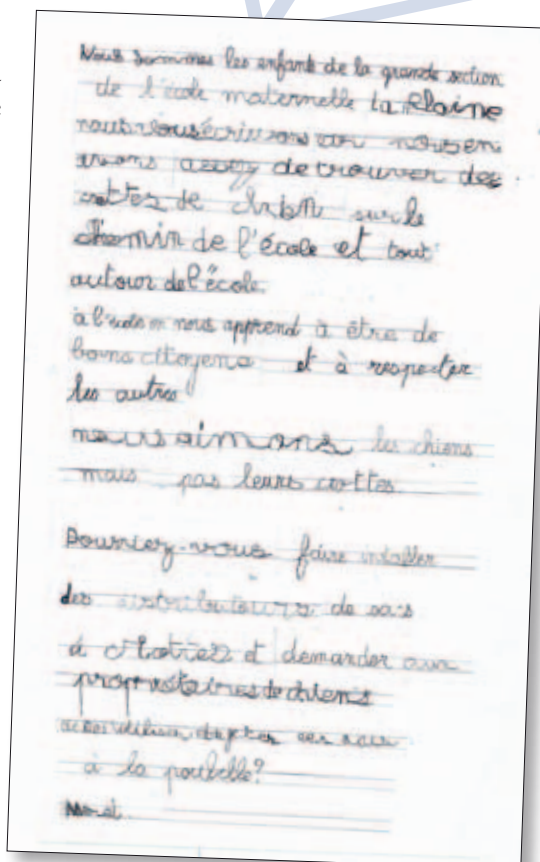 Nous sommes les enfants de la grande section
de l'école maternelle la Plaine
nous vous écrivons car nous en
avons assez de trouver des
crottes de chien sur le
chemin de l'école et tout
autour de l'école.
à l'école on nous apprend à être de
bons citoyens et à respecter
les autres
nous aimons les chiens
mais pas leurs crottes.
Pourriez-vous faire installer
des distributeurs de sacs
à crottes et demander aux
propriétaires de chiens
utiliser ces sacs
à la poubelle?
Merci.